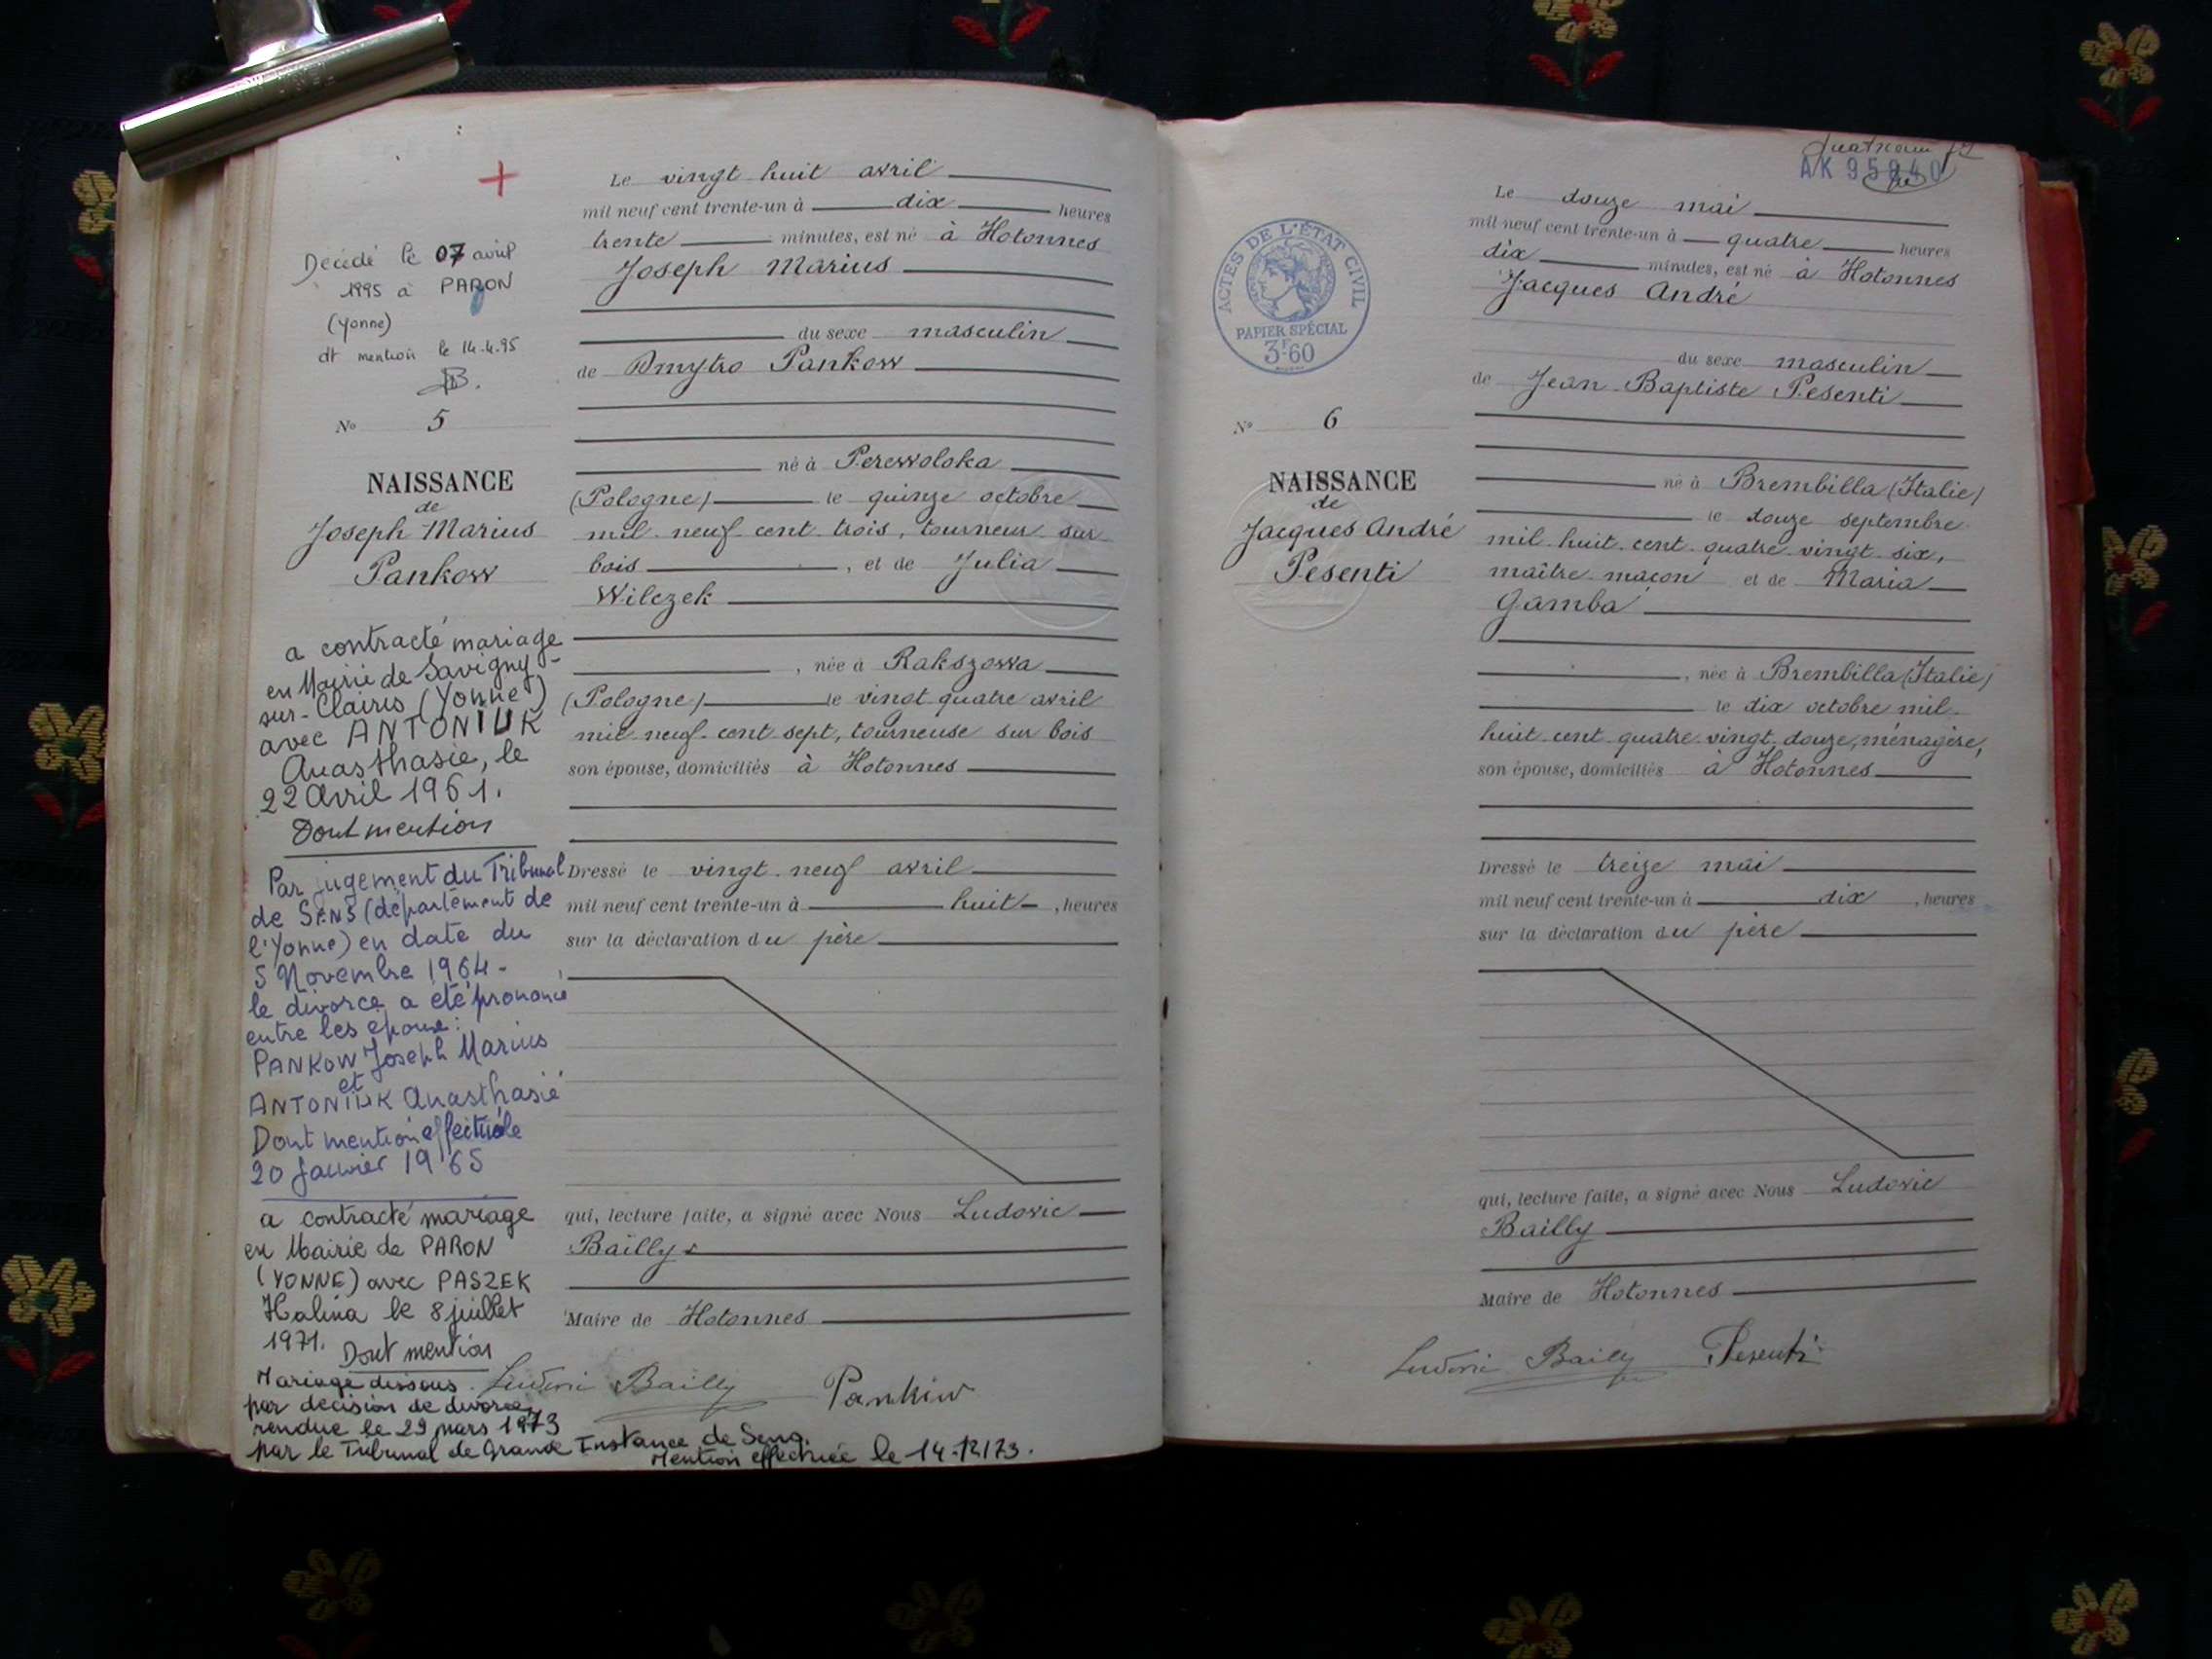 Décédé le 07 avril
1995 à PARON
(Yonne)
dt mention le 14.4.95
No 5
NAISSANCE
de
Joseph Marius
Pankow
a contracté mariage
en Mairie de Savigny-
sur-Clairis (Yonne)
avec ANTONIUK
Anasthasie, le
22 Avril 1961.
Dont mention
Par jugement du Tribunal
de SENS (département de
l'Yonne) en date du
5 Novembre 1964-
le divorce a été prononcé
entre les époux:
PANKOW Joseph Marius
et
ANTONIUK Anasthasie
Dont mention effectuée le
20 Janvier 1965
a contracté mariage
en Mairie de PARON
(YONNE) avec PASZEK
Halina le 8 juillet
1971. Dont mention
Mariage dissous
par décision de divorce,
rendue le 29 mars 1973
par le Tribunal de Grande Instance de Sens.
Mention effectuée le 14.12.73.
Le vingt huit avril
mil neuf cent trente-un à dix heures
trente minutes, est né à Hotonnes
Joseph Marius
du sexe masculin
de Dmytro Pankow
né à Perewoloka
(Pologne) le quinze octobre
mil neuf cent trois, tourneur sur
bois, et de Julia
Wilczek
, née à Rakszowa
(Pologne) le vingt quatre avril
mil neuf cent sept, tourneuse sur bois
son épouse, domiciliés à Hotonnes
Dressé le vingt neuf avril
mil neuf cent trente-un à huit, heures
sur la déclaration du père
qui, lecture faite, a signé avec Nous Ludovic
Bailly
Maire de Hotonnes
Ludovic Bailly Pankiw
AK 95940
ACTES DE L'ÉTAT CIVIL
PAPIER SPÉCIAL
3F60
No 6
NAISSANCE
de
Jacques André
Pesenti
Le douze mai
mil neuf cent trente-un à quatre heures
dix minutes, est né à Hotonnes
Jacques André
du sexe masculin
de Jean-Baptiste Pesenti
né à Brembilla (Italie)
le douze septembre
mil huit cent quatre vingt six,
maître maçon et de Maria
Gamba
, née à Brembilla (Italie)
le dix octobre mil
huit cent quatre vingt douze, ménagère,
son épouse, domiciliés à Hotonnes
Dressé le treize mai
mil neuf cent trente-un à dix, heures
sur la déclaration du père
qui, lecture faite, a signé avec Nous Ludovic
Bailly
Maire de Hotonnes
Ludovic Bailly Pesenti